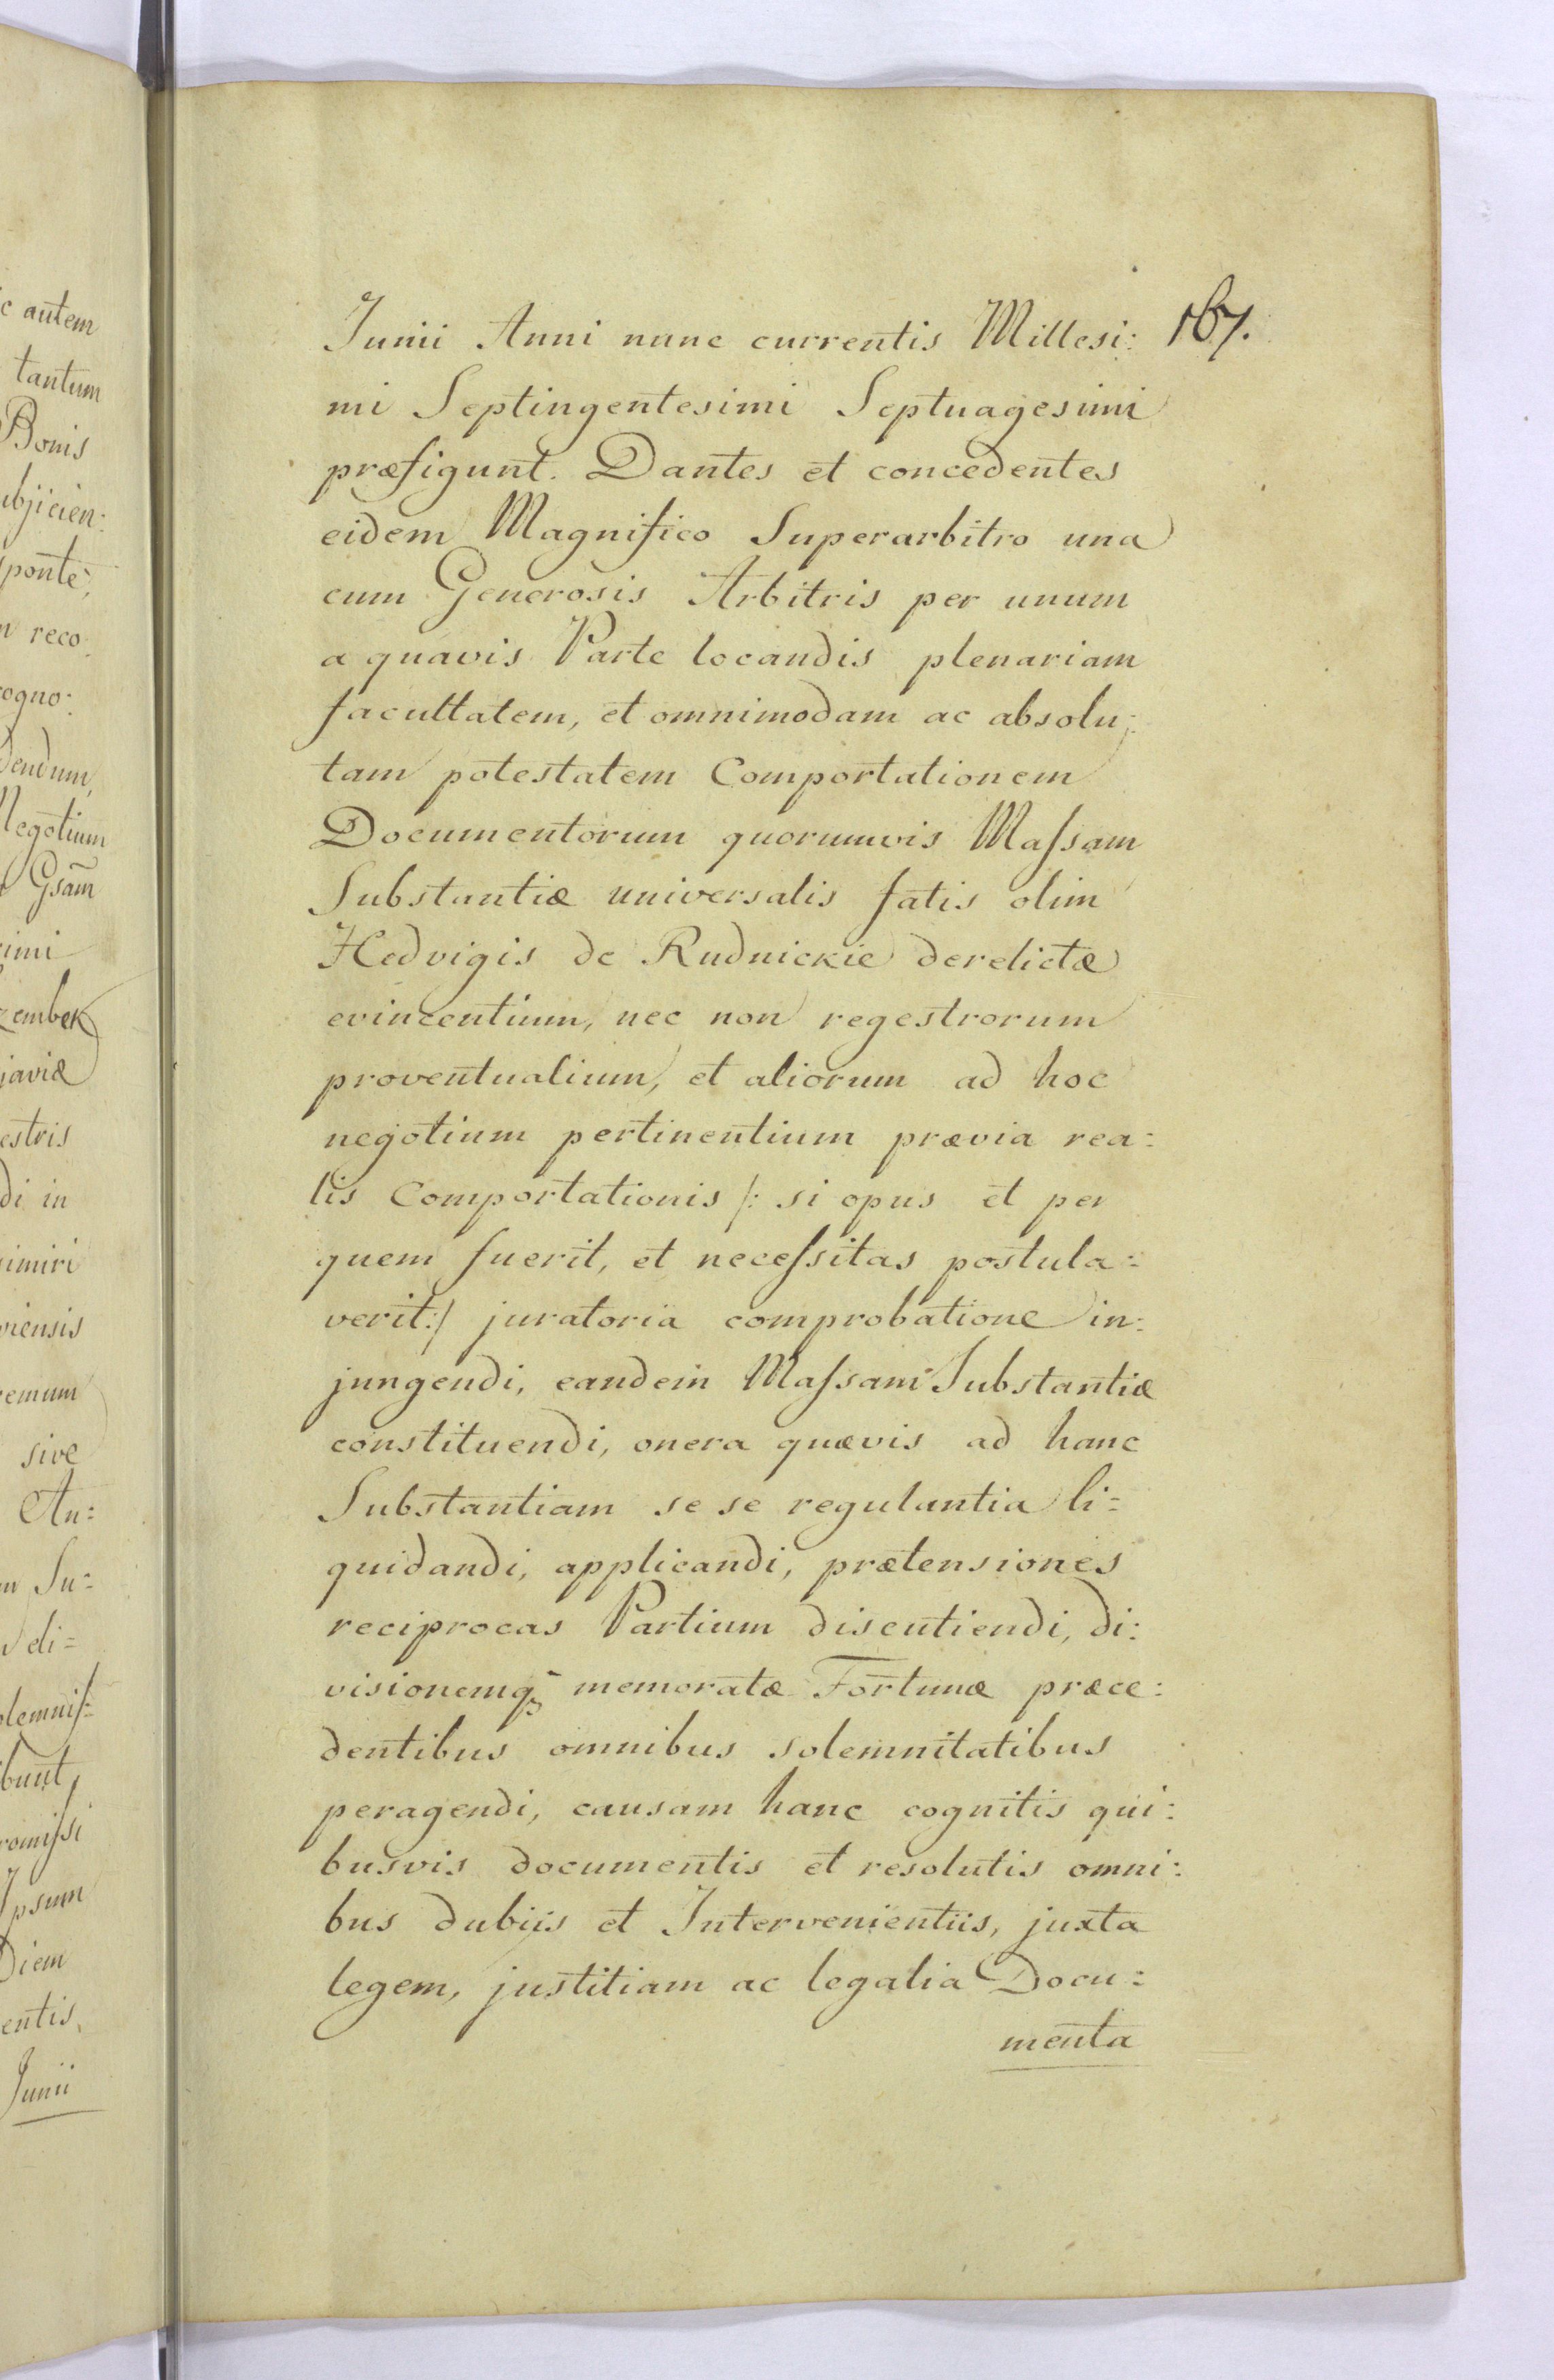 c autem
tantum
Bonis
ubjicien:
sponte,
n reco:
cogno:
dendum,
Negotium
Gsam̃
rimi
zembek
javiæ
estris
di in
imiri
viensis
remum
sive
An:
m Su:
deli=
olemnis:
ibunt,
romissi
Ipsum
Diem
entis,
Junii
167.
Junii Anni nunc currentis Millesi:
mi Septingentesimi Septuagesimi
præfigunt. Dantes et concedentes
eidem Magnifico Superarbitro una
cum Generosis Arbitris per unum
a quavis Parte locandis plenariam
facultatem, et omnimodam ac absolu:
tam potestatem Comportationem
Documentorum quorumvis Maſsam
Substantiæ universalis fatis olim
Hedvigis de Rudnickie derelictæ
evincentium, nec non regestrorum
proventualium, et aliorum ad hoc
negotium pertinentium prævia rea:
lis Comportationis /: si opus et per
quem fuerit, et neceſsitas postula:
verit:/ juratoria comprobatione in:
jungendi, eandem Maſsam Substantiæ
constituendi, onera quævis ad hanc
Substantiam se se regulantia li=
quidandi, applicandi, prætensiones
reciprocas Partium discutiendi, di:
visionemq̃ memoratæ Fortunæ præce:
dentibus omnibus solemnitatibus
peragendi, causam hanc cognitis qui:
busvis documentis et resolutis omni:
bus dubiis et Intervenientiis, juxta
legem, justitiam ac legalia Docu:
menta